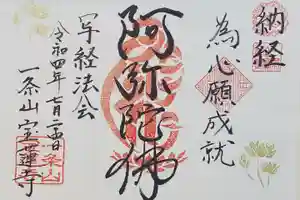 納経
為心願成就
阿弥陀佛
写経法会
令和四年七月二十一日
一条山宝蓮寺